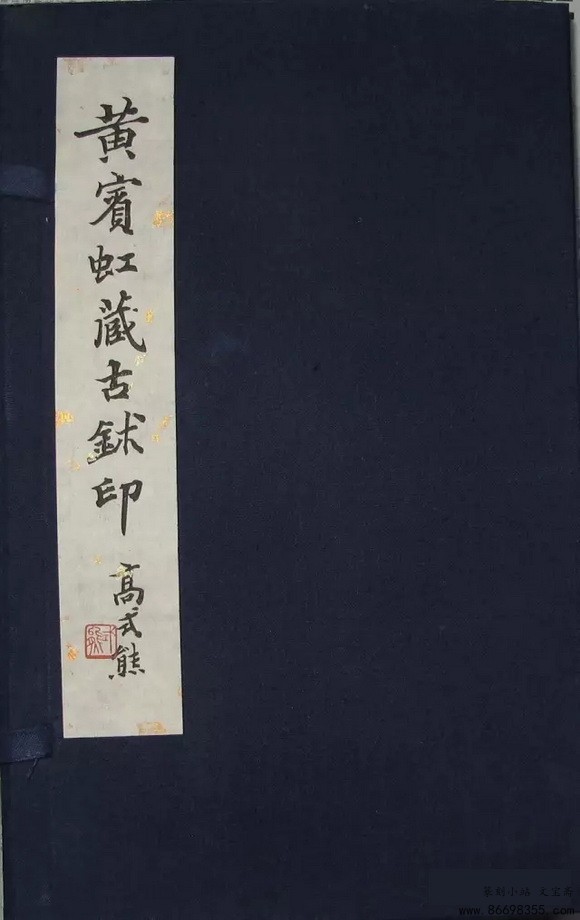 黄賓虹藏古鉥印
高式熊
篆刻小站 文宝斋
www.86698355.com